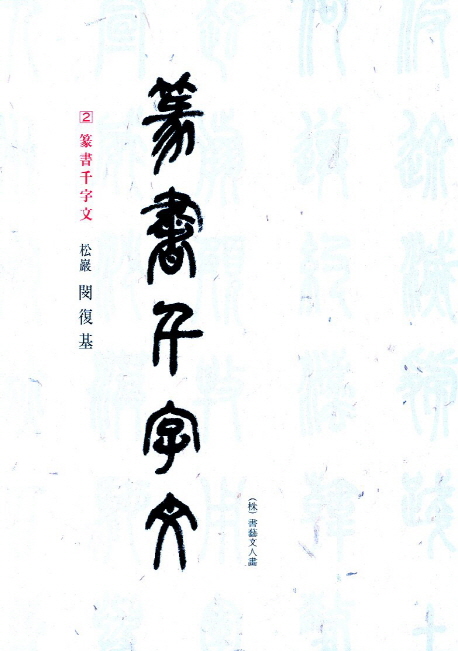 篆書千字文
2 篆書千字文
松巖 閔復基
(株)書藝文人畫